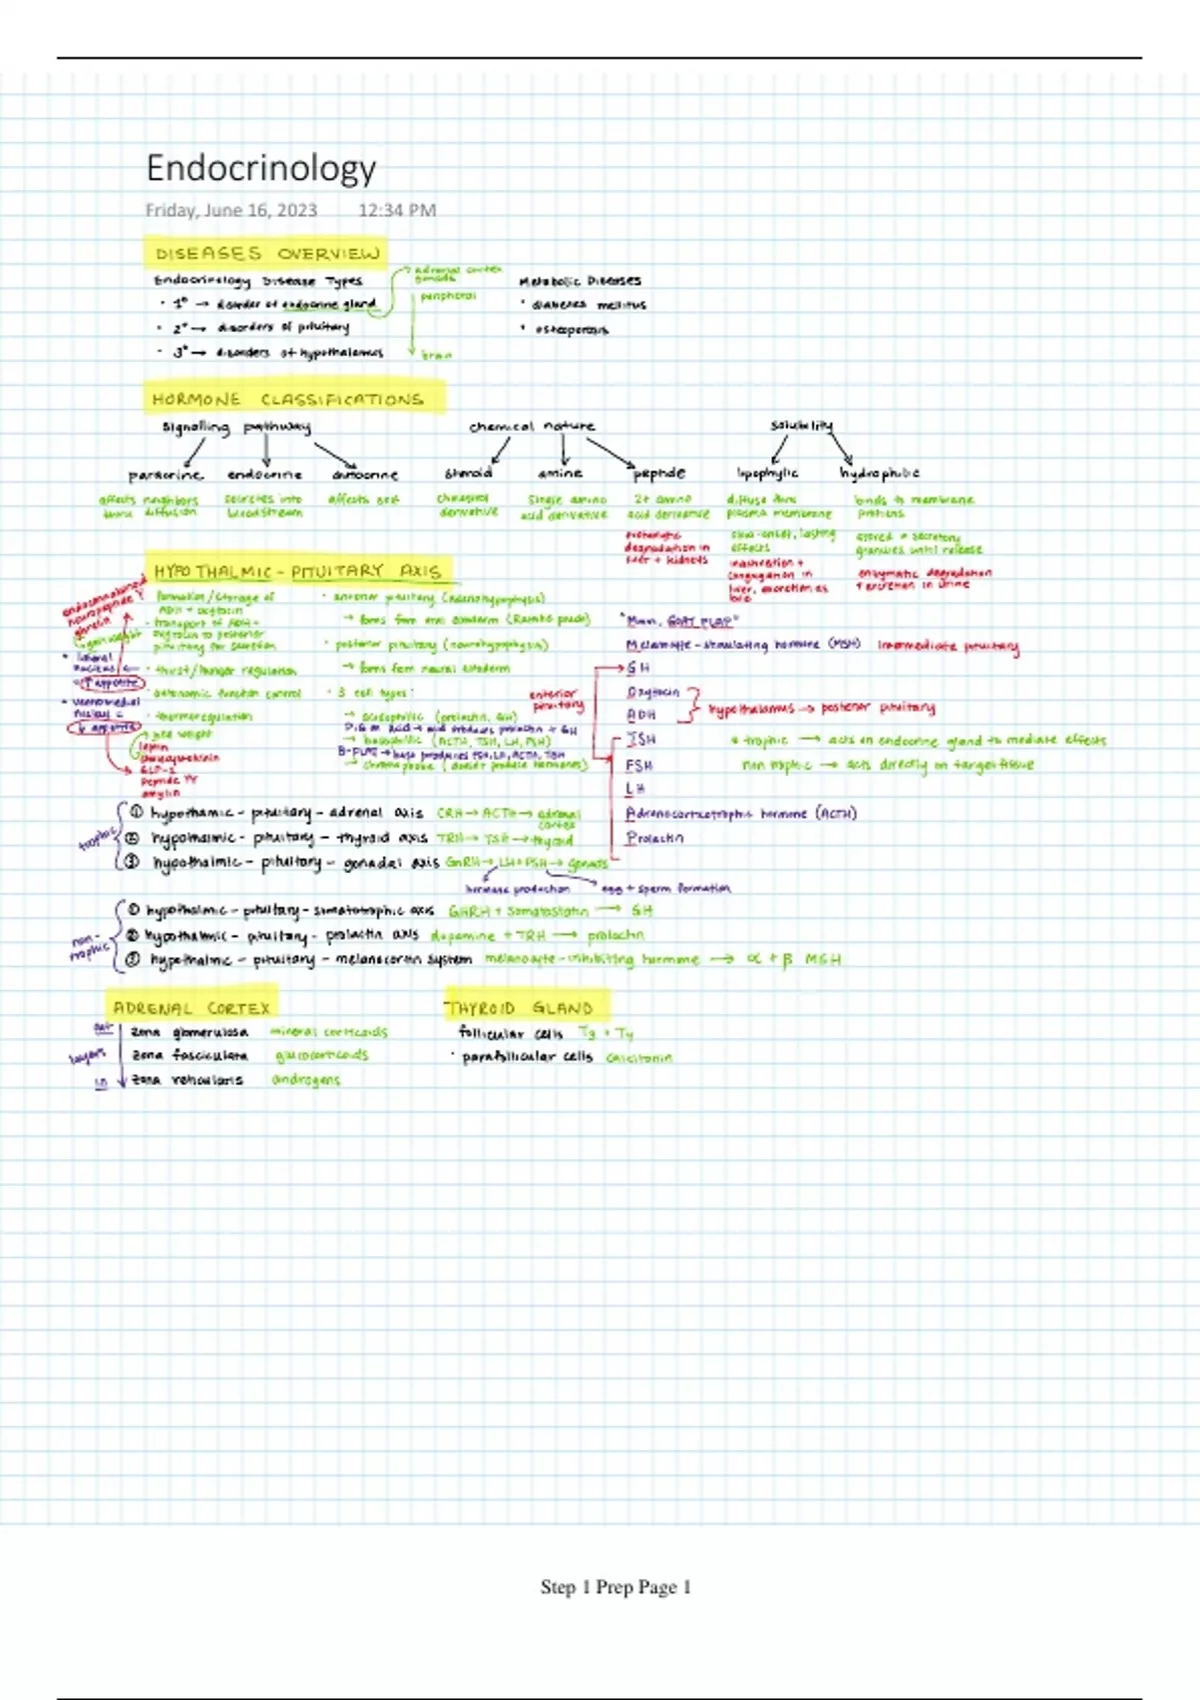 Endocrinology
Friday, June 16, 2023 12:34 PM
DISEASES OVERVIEW
Endocrinology Disease Types
adrenal cortex
gonads
Metabolic Diseases
• 1° → disorder of endocrine gland
peripheral
• diabetes mellitus
• 2° → disorders of pituitary
• osteoporosis
• 3° → disorders of hypothalamus
brain
HORMONE CLASSIFICATIONS
Signalling pathway
chemical nature
solubility
paracrine endocrine autocrine steroid amine peptide lipophylic hydrophilic
affects neighbors
thru diffusion
secretes into
bloodstream
affects self
cholesterol
derivative
single amino
acid derivative
2+ amino
acid derivative
diffuse thru
plasma membrane
binds to membrane
proteins
proteolytic
degradation in
liver + kidneys
slow-onset, lasting
effects
stored in secretory
granules until release
inactivation +
conjugation in
liver, excretion as
bile
enzymatic degradation
+ excretion in urine
HYPOTHALMIC - PITUITARY AXIS
neuropeptide Y
ghrelin
formation/storage of
ADH + oxytocin
• transport of ADH +
oxytocin to posterior
pituitary for secretion
• thirst/hunger regulation
• autonomic function control
• thermoregulation
• lateral
nucleus
↑ appetite
• ventromedial
nucleus
↓ appetite
leptin
cholecystokinin
GLP-1
Peptide YY
amylin
• anterior pituitary (adenohypophysis)
→ forms from oral ectoderm (Rathke pouch)
• posterior pituitary (neurohypophysis)
→ forms from neural ectoderm
• 3 cell types:
→ acidophilic (prolactin, GH)
→ basophilic (ACTH, TSH, LH, FSH)
B-FLAT → base produces FSH, LH, ACTH, TSH
→ chromophobe (doesn't produce hormones)
"Mmm, GOAT FLAP"
Melanocyte-stimulating hormone (MSH) intermediate pituitary
GH
anterior
pituitary
Oxytocin
ADH
hypothalamus → posterior pituitary
TSH
* trophic → acts on endocrine gland to mediate effects
FSH
non trophic → acts directly on target tissue
LH
Adrenocorticotrophic hormone (ACTH)
Prolactin
trophic
① hypothamic - pituitary - adrenal axis CRH → ACTH → adrenal
cortex
② hypothalmic - pituitary - thyroid axis TRH → TSH → thyroid
③ hypothalmic - pituitary - gonadal axis GnRH → LH+FSH → gonads
hormone production
egg + sperm formation
non-
trophic
① hypothalmic - pituitary - somatotrophic axis GHRH + Somatostatin → GH
② hypothalmic - pituitary - prolactin axis dopamine + TRH → prolactin
③ hypothalmic - pituitary - melanocortin system melanocyte-inhibiting hormone → α + β MSH
ADRENAL CORTEX
THYROID GLAND
out
layers
in
zona glomerulosa mineral corticoids
zona fasciculata glucocorticoids
zona reticularis androgens
follicular cells T3 + T4
• parafollicular cells calcitonin
Step 1 Prep Page 1